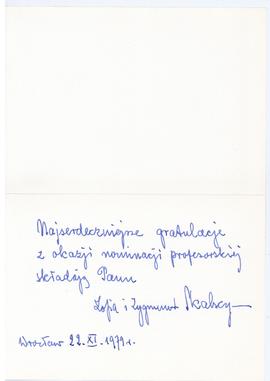 Najserdeczniejsze gratulacje
z okazji nominacji profesorskiej
składają Panu
Zofia i Zygmunt Skalscy
Wrocław 22.XI.1979 r.